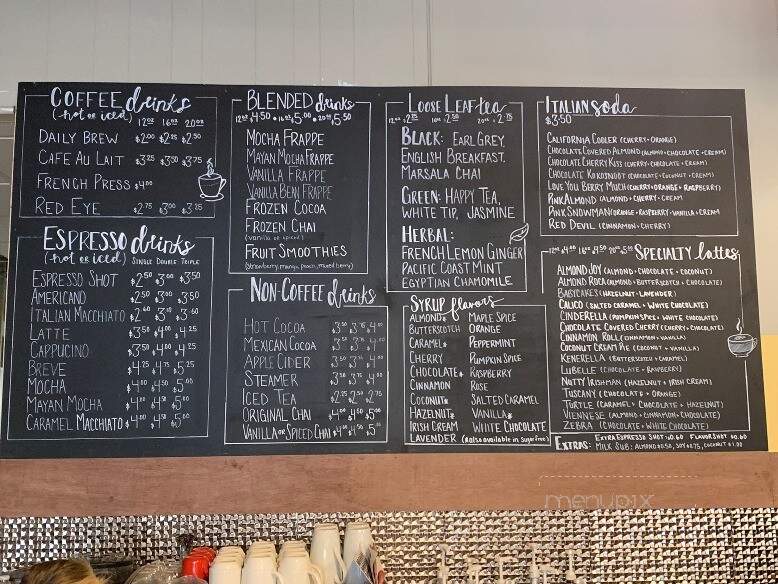 COFFEE drinks
(hot or iced) 12oz 16oz 20oz
DAILY BREW $2.00 $2.25 $2.50
CAFE AU LAIT $3.25 $3.50 $3.75
FRENCH PRESS $4.00
RED EYE $2.75 $3.00 $3.25
ESPRESSO drinks
(hot or iced) SINGLE DOUBLE TRIPLE
ESPRESSO SHOT $2.50 $3.00 $3.50
AMERICANO $2.50 $3.00 $3.50
ITALIAN MACCHIATO $2.60 $3.10 $3.60
LATTE $3.50 $4.00 $4.25
CAPPUCINO $3.50 $4.00 $4.25
BREVE $4.25 $4.75 $5.25
MOCHA $4.00 $4.50 $5.00
MAYAN MOCHA $4.00 $4.50 $5.00
CARAMEL MACCHIATO $4.00 $4.50 $5.00
BLENDED drinks
12oz $4.50 • 16oz $5.00 • 20oz $5.50
MOCHA FRAPPE
MAYAN MOCHA FRAPPE
VANILLA FRAPPE
VANILLA BEAN FRAPPE
FROZEN COCOA
FROZEN CHAI
(vanilla or spiced)
FRUIT SMOOTHIES
(strawberry, mango, peach, mixed berry)
NON-COFFEE drinks
HOT COCOA $3.50 $3.75 $4.00
MEXICAN COCOA $3.50 $3.75 $4.00
APPLE CIDER $3.50 $3.75 $4.00
STEAMER $3.50 $3.75 $4.00
ICED TEA $2.25 $2.50 $2.75
ORIGINAL CHAI $4.00 $4.50 $5.00
VANILLA OR SPICED CHAI $4.00 $4.50 $5.00
LOOSE LEAF tea
12oz $2.25 16oz $2.50 20oz $2.75
BLACK: EARL GREY,
ENGLISH BREAKFAST,
MARSALA CHAI
GREEN: HAPPY TEA,
WHITE TIP, JASMINE
HERBAL:
FRENCH LEMON GINGER
PACIFIC COAST MINT
EGYPTIAN CHAMOMILE
SYRUP flavors
ALMOND* MAPLE SPICE
BUTTERSCOTCH ORANGE
CARAMEL* PEPPERMINT
CHERRY PUMPKIN SPICE
CHOCOLATE* RASPBERRY
CINNAMON ROSE
COCONUT* SALTED CARAMEL
HAZELNUT* VANILLA*
IRISH CREAM WHITE CHOCOLATE
LAVENDER (*also available in sugar free)
ITALIAN soda
$3.50
CALIFORNIA COOLER (CHERRY + ORANGE)
CHOCOLATE COVERED ALMOND (ALMOND + CHOCOLATE + CREAM)
CHOCOLATE CHERRY KISS (CHERRY + CHOCOLATE + CREAM)
CHOCOLATE KOKOSNOOT (CHOCOLATE + COCONUT + CREAM)
LOVE YOU BERRY MUCH (CHERRY + ORANGE + RASPBERRY)
PINK ALMOND (ALMOND + CHERRY + CREAM
PINK SNOWMAN (ORANGE + RASPBERRY + VANILLA + CREAM
RED DEVIL (CINNAMON + CHERRY)
12oz $4.00 16oz $4.50 20oz $5.00 SPECIALTY lattes
ALMOND JOY (ALMOND + CHOCOLATE + COCONUT)
ALMOND ROCA (ALMOND + BUTTERSCOTCH + CHOCOLATE)
BABYCAKES (HAZELNUT + LAVENDER)
CALICO (SALTED CARAMEL + WHITE CHOCOLATE)
CINDERELLA (PUMPKIN SPICE + WHITE CHOCOLATE)
CHOCOLATE COVERED CHERRY (CHERRY + CHOCOLATE)
CINNAMON ROLL (CINNAMON + VANILLA)
COCONUT CREAM PIE (COCONUT + VANILLA)
KENERELLA (BUTTERSCOTCH + CARAMEL)
LUBELLE (CHOCOLATE + RASPBERRY)
NUTTY IRISHMAN (HAZELNUT + IRISH CREAM)
TUSCANY (CHOCOLATE + ORANGE)
TURTLE (CARAMEL + CHOCOLATE + HAZELNUT)
VIENNESE (ALMOND + CINNAMON + CHOCOLATE)
ZEBRA (CHOCOLATE + WHITE CHOCOLATE)
EXTRAS: EXTRA ESPRESSO SHOT $0.60 FLAVOR SHOT $0.60
MILK SUB: ALMOND $0.50, SOY $0.75, COCONUT $1.00
menupix